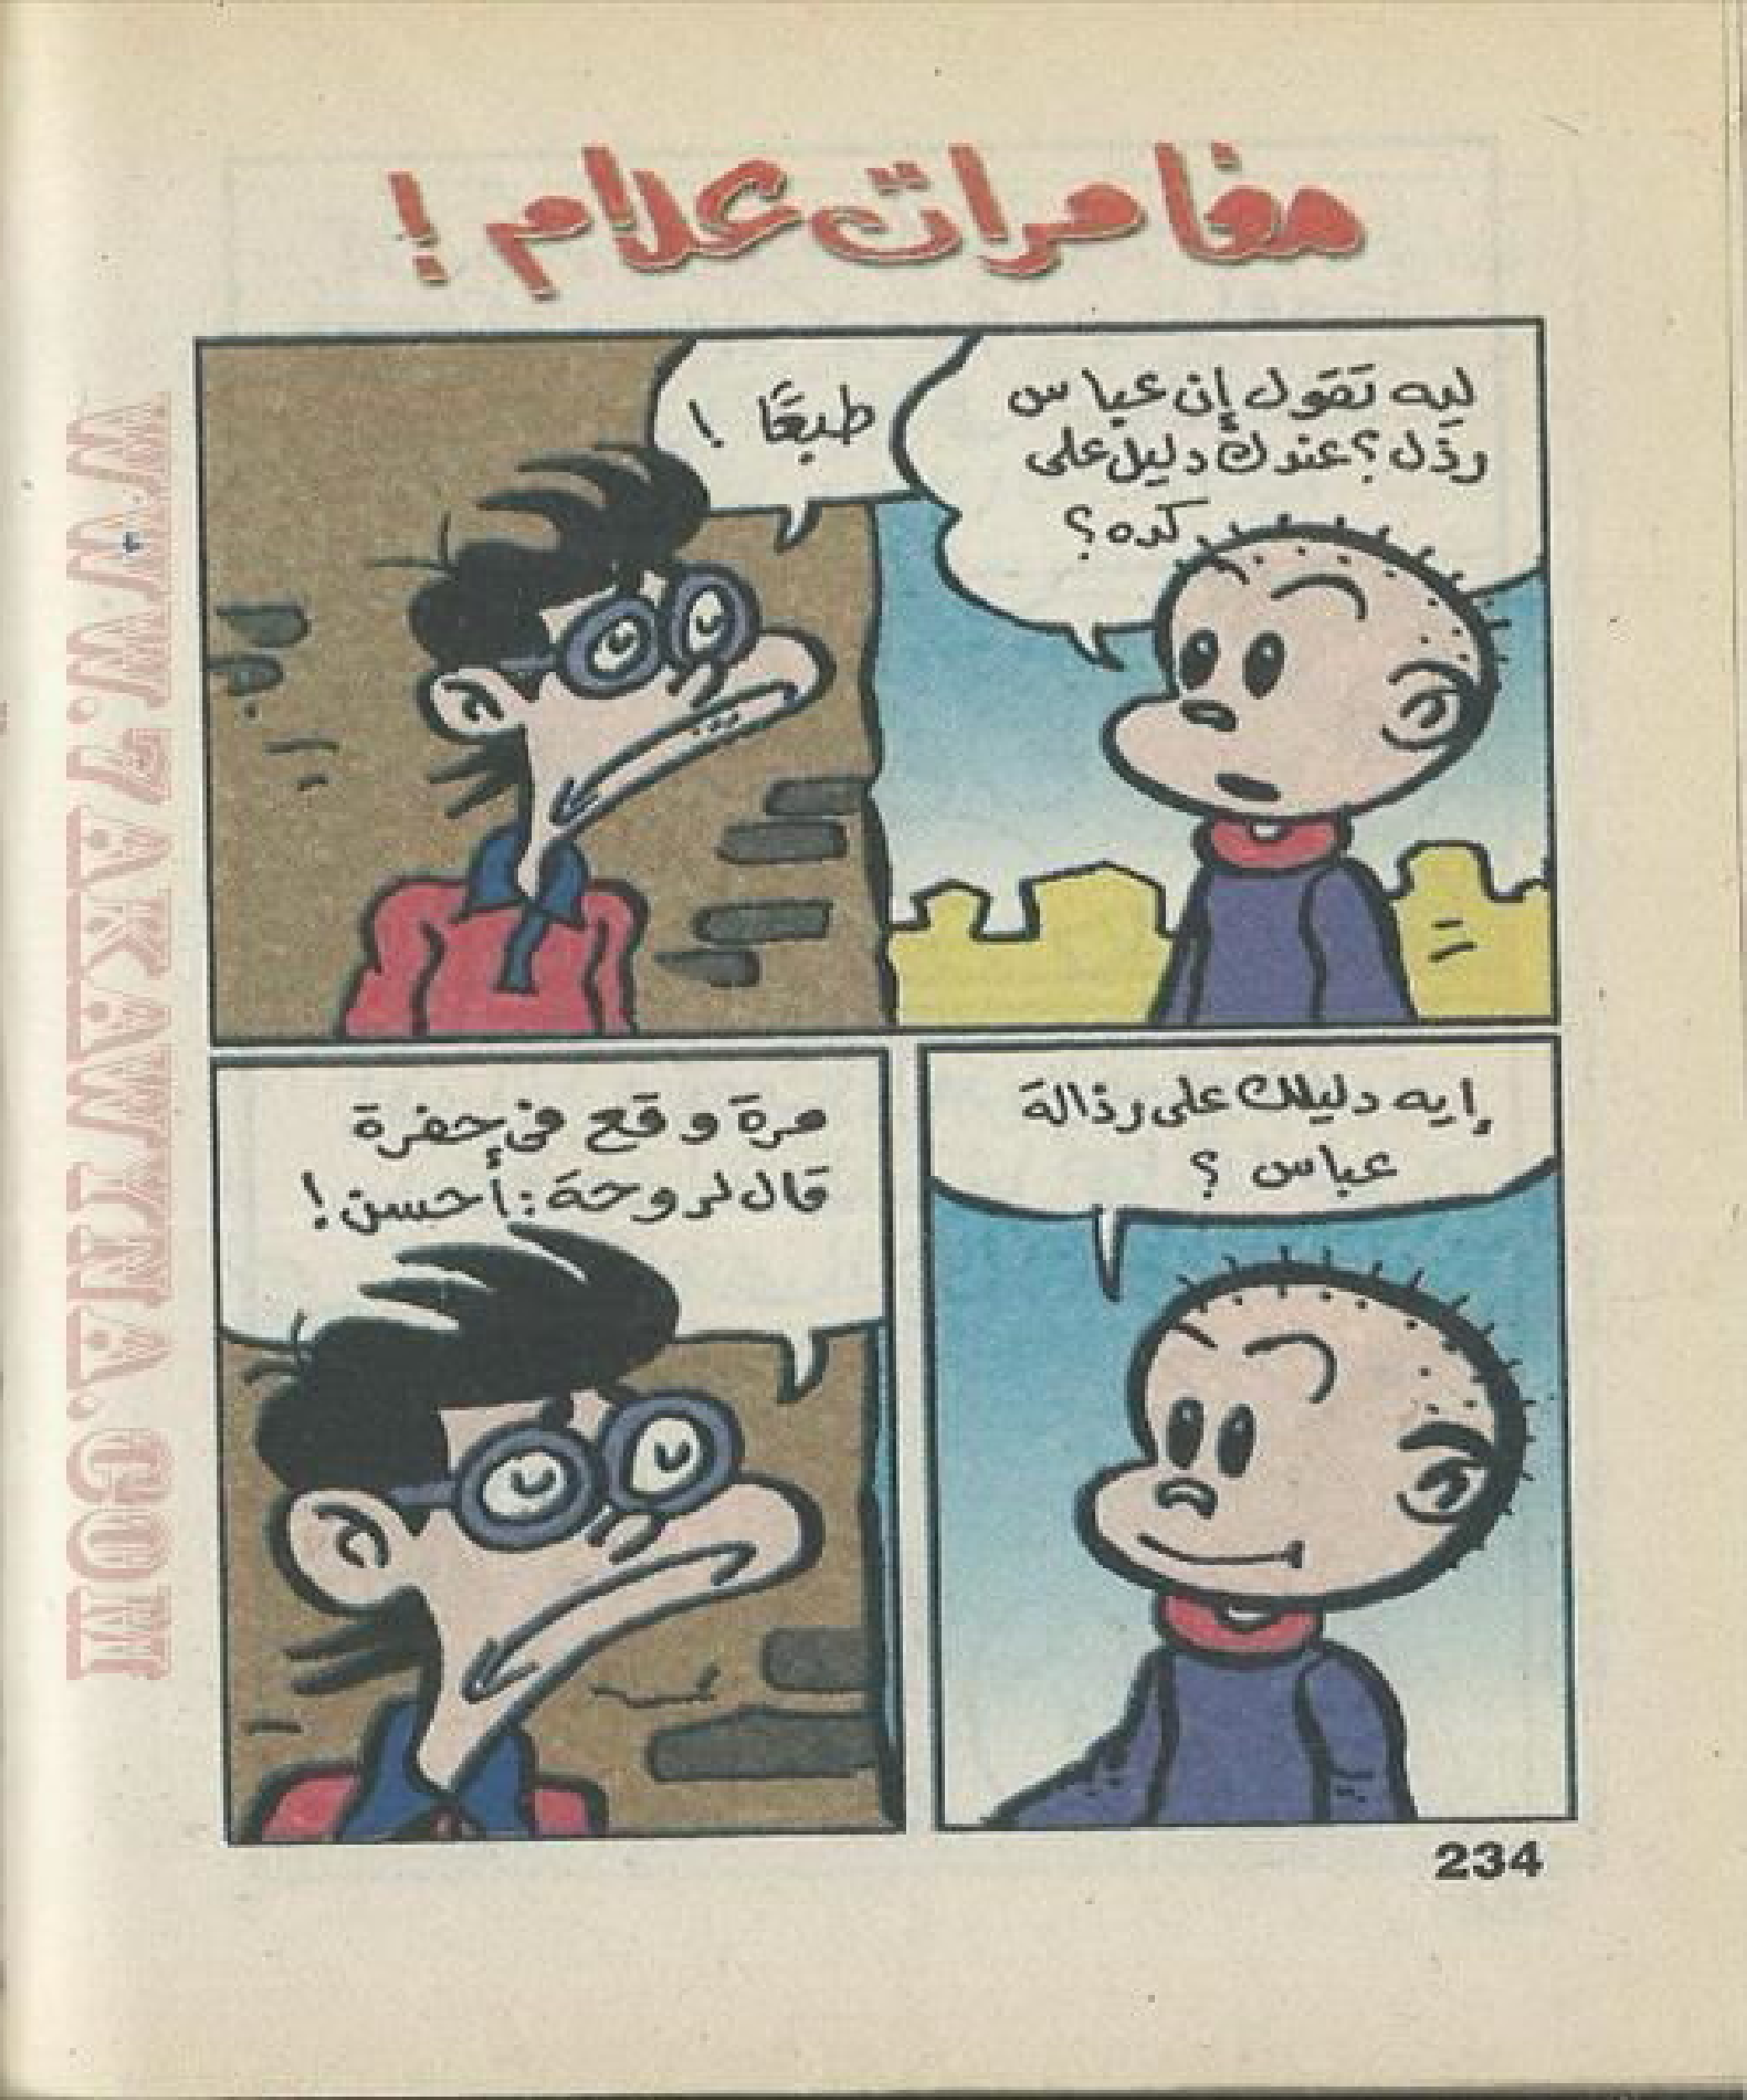 مغامرات علام !
ليه تقول إن عباس
رذل ؟ عندك دليل على
كده ؟
طبعًا !
إيه دليلك على رذالة
عباس ؟
مرة وقع فى حفرة
قال لروحة : أحسن !
234
WWW.7AKAWITNA.COM